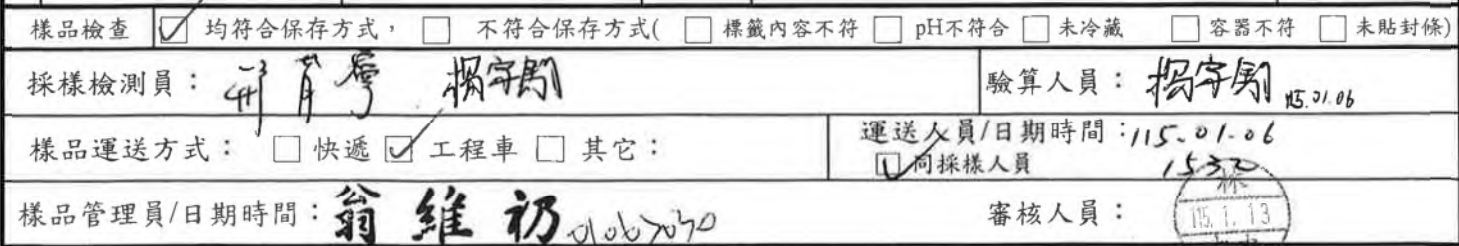 樣品檢查 ☑ 均符合保存方式, ☐ 不符合保存方式( ☐ 標籤內容不符 ☐ pH不符合 ☐ 未冷藏 ☐ 容器不符 ☐ 未貼封條)
採樣檢測員: 驗算人員: 115.01.06
樣品運送方式: ☐ 快遞 ☑ 工程車 ☐ 其它: 運送人員/日期時間:115.01.06
☑ 同採樣人員 1532
樣品管理員/日期時間:翁維初 審核人員: 林 115.1.13